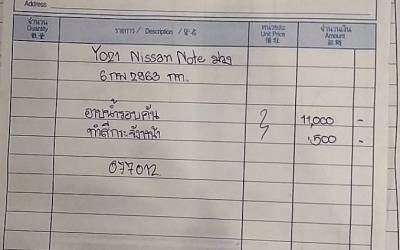 Address
จำนวน Quantity 數量 รายการ / Description / 品名 หน่วยละ Unit Price 價值 จำนวนเงิน Amount 銀碼
Y021 Nissan Note
6 กพ 2863 กท.
อาบน้ำรอบคัน 11,000 -
ทำสีกระจังหน้า 1,500 -
077012